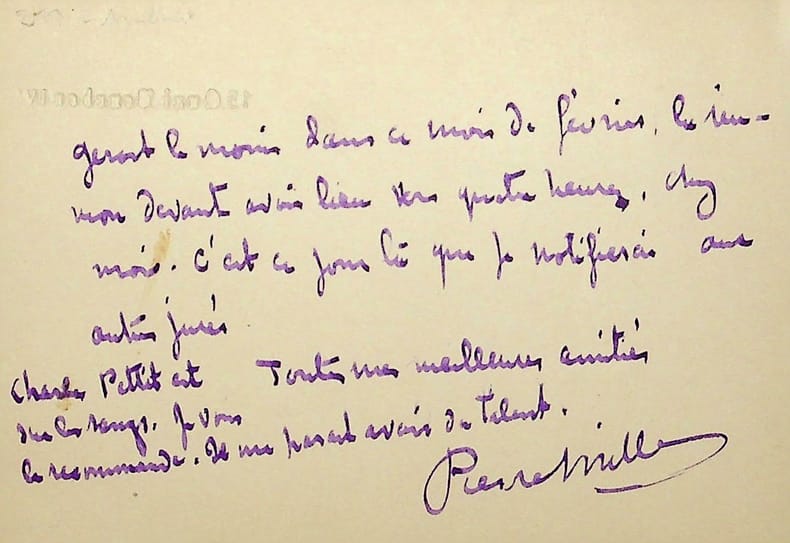 15 Quai Bourbon IV
gerait le moins dans ce mois de février, la réu-
nion devant avoir lieu vers quatre heures, chez
moi. C'est ce jour là que je notifierai aux
autres jurés
Toutes mes meilleures amitiés
Charles Pettit est
sur les rangs. Je vous
le recommande. Il me paraît avoir du talent.
Pierre Mille